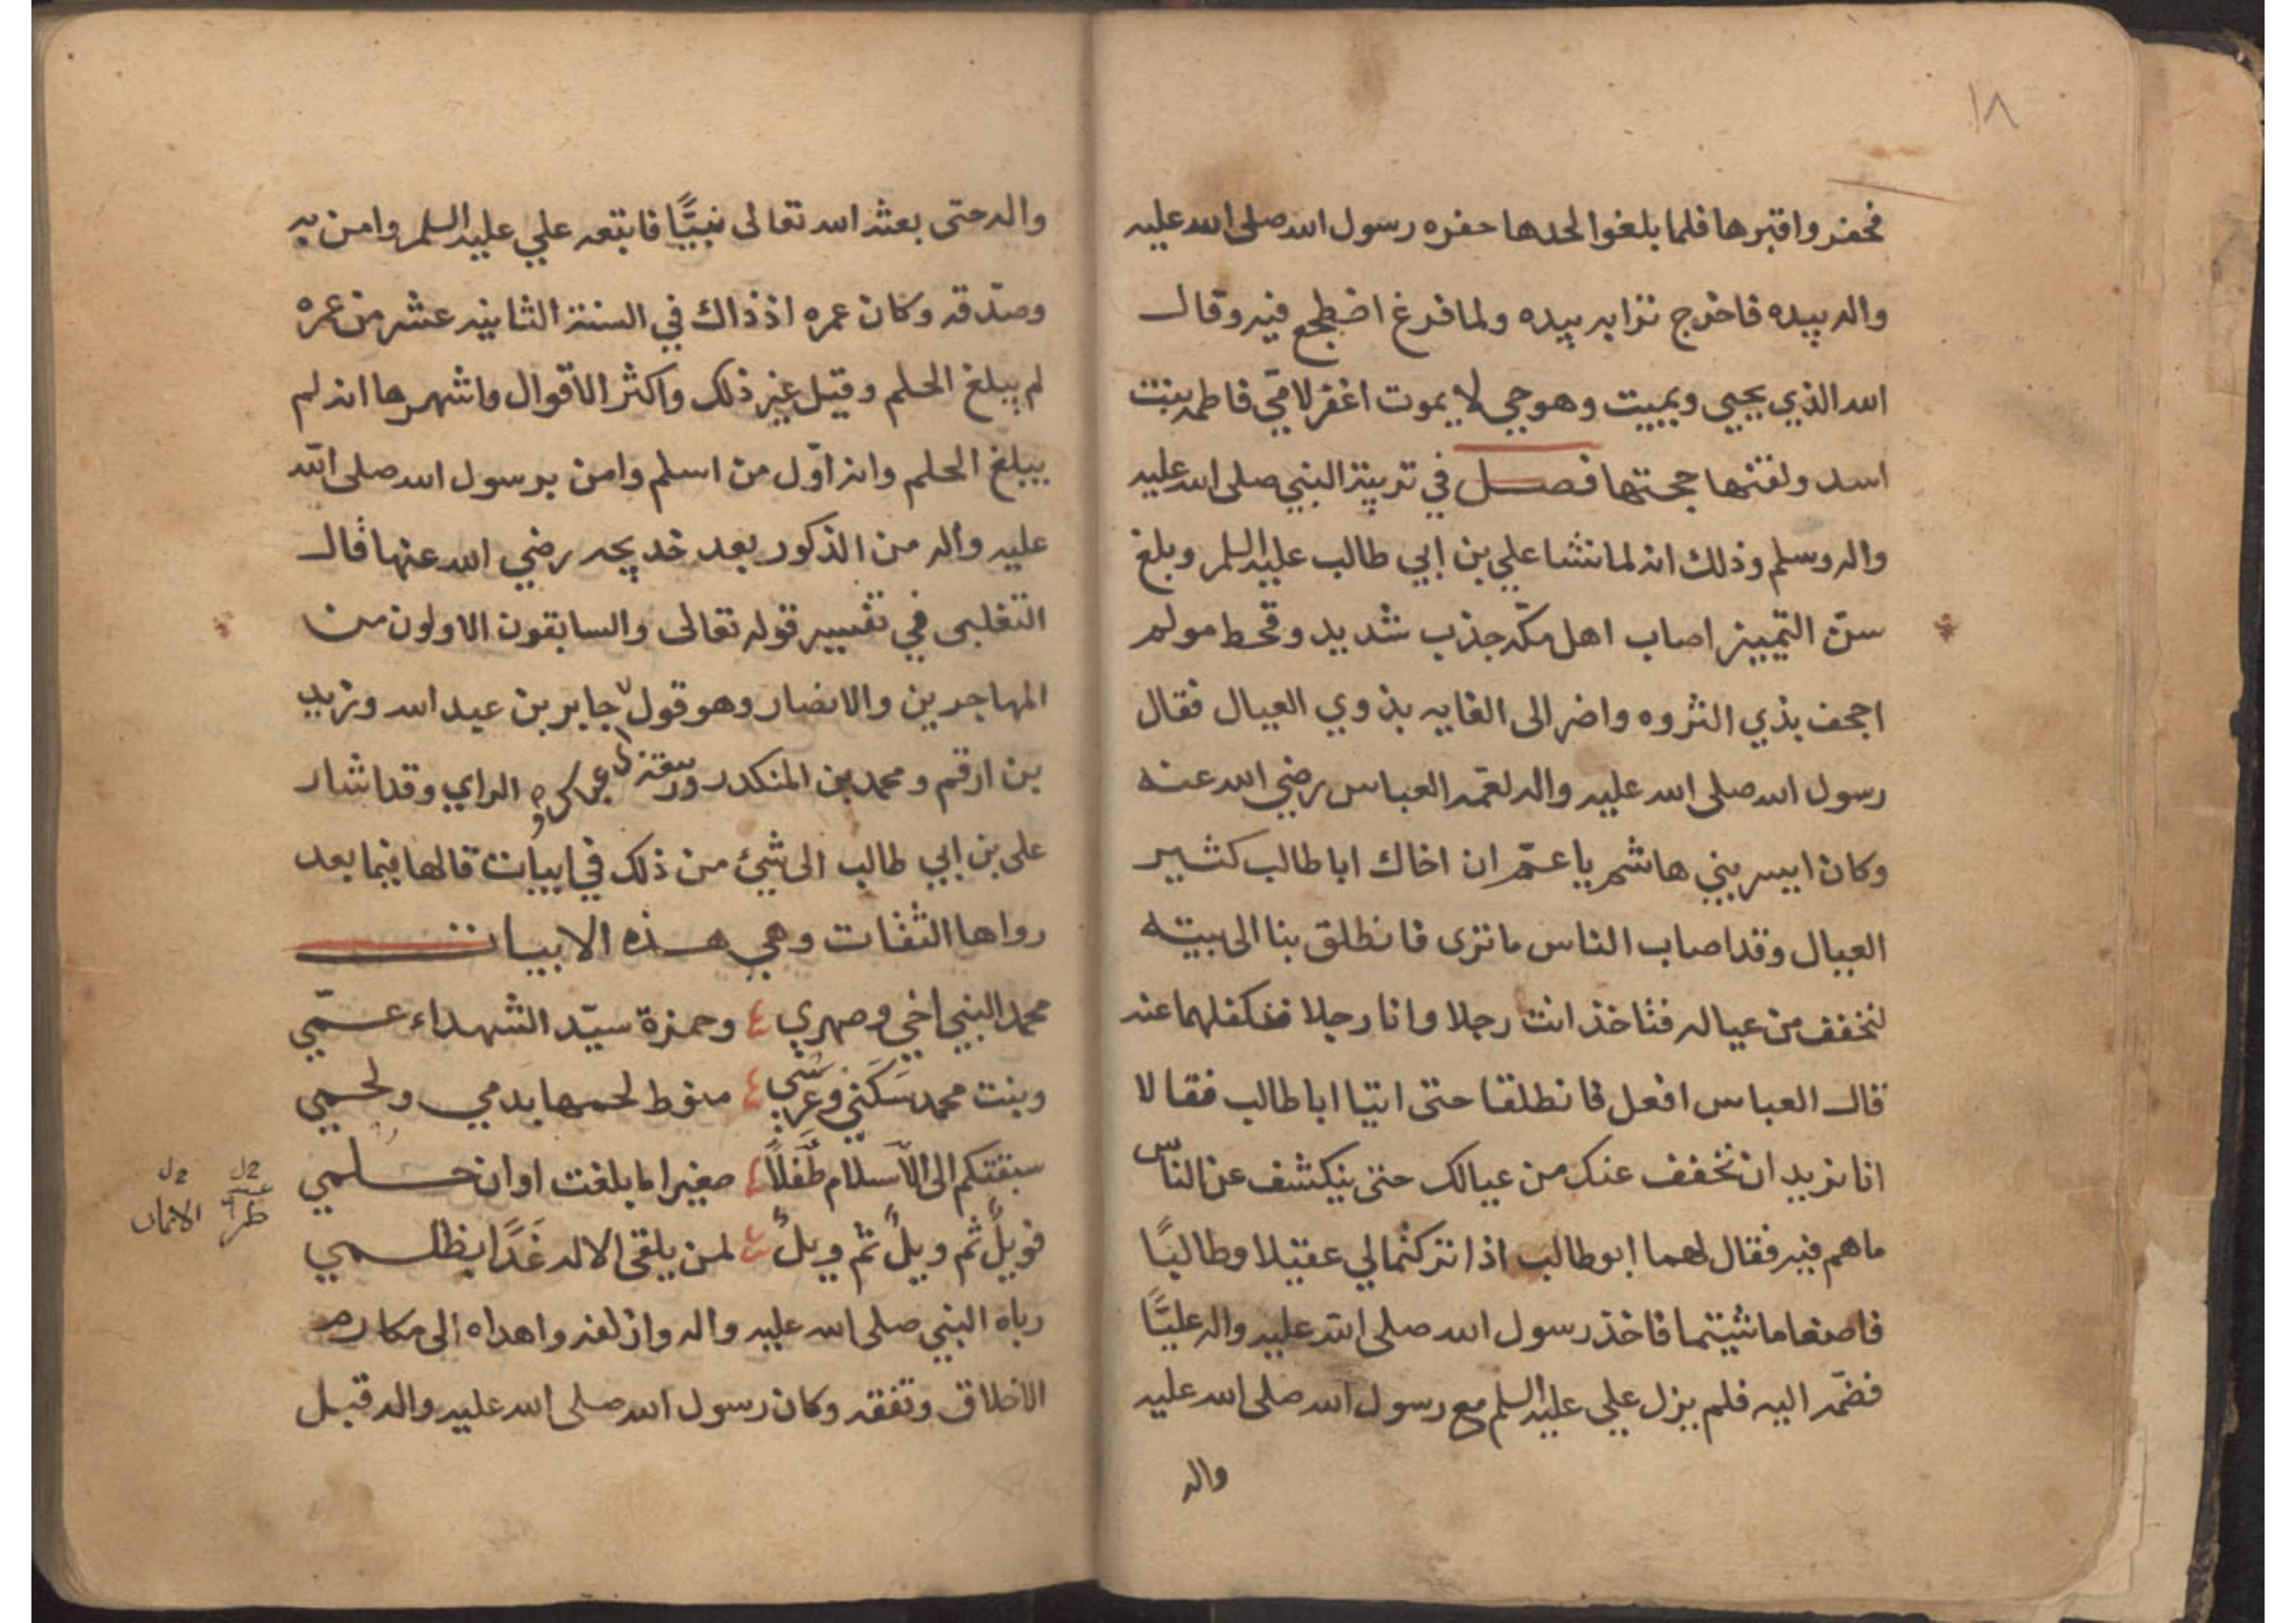 ١٨
فحفروا قبرها فلما بلغوا لحدها حفره رسول الله صلى الله عليه
واله بيده فاخرج ترابه بيده ولما فرغ اضطجع فيه وقال
الله الذي يحيي ويميت وهو حي لا يموت اغفر لامّي فاطمه بنت
اسد ولقنها حجتها فصل في تربية النبي صلى الله عليه
واله وسلم وذلك انه لما نشا علي بن ابي طالب عليه السلم وبلغ
سنّ التمييز اصاب اهل مكّه جذب شديد وقحط مولم
اجحف بذي الثروه واضر الى الغايه بذوي العيال فقال
رسول الله صلى الله عليه واله لعمّه العباس رضي الله عنه
وكان ايسر بني هاشم يا عمّ ان اخاك ابا طالب كثير
العيال وقد اصاب الناس ما ترى فانطلق بنا الى بيته
لنخفف من عياله فتاخذ انت رجلا وانا رجلا فنكفلهما عنه
قال العباس افعل فانطلقا حتى اتيا ابا طالب فقالا
انا نريد ان نخفف عنك من عيالك حتى ينكشف عن الناس
ما هم فيه فقال لهما ابو طالب اذا تركتما لي عقيلا وطالبًا
فاصنعا ما شيتما فاخذ رسول الله صلى الله عليه واله عليًّا
فضمّه اليه فلم يزل علي عليه السلم مع رسول الله صلى الله عليه
واله
واله حتى بعثه الله تعالى نبيًّا فاتبعه علي عليه السلم وامن به
وصدقه وكان عمره اذ ذاك في السنة الثانيه عشر من عمره
لم يبلغ الحلم وقيل غير ذلك واكثر الاقوال واشهرها انه لم
يبلغ الحلم وانه اوّل من اسلم وامن برسول الله صلى الله
عليه واله من الذكور بعد خديجه رضي الله عنها قال
الثعلبى في تفسير قوله تعالى والسابقون الاولون من
المهاجرين والانصار وهو قول جابر بن عبد الله وزيد
بن ارقم ومحمد بن المنكدر وربيعة الراي وقد اشار
على بن ابي طالب الى شيئ من ذلك في ابيات قالها فيما بعد
رواها الثقات وهي هذه الابيات
محمد النبي اخي وصهري وحمزة سيّد الشهداء عمّي
وبنت محمد سكني وعرسي منوط لحمها بدمي ولحمي
سبقتكم الى الاسلام طفلاً صغيرا ما بلغت اوان حلمي
فويلٌ ثم ويلٌ ثم ويلٌ لمن يلقى الاله غدًا بظلمي
رباه النبي صلى الله عليه واله وازلفه واهداه الى مكارم
الاخلاق وتفقه وكان رسول الله صلى الله عليه واله قبل